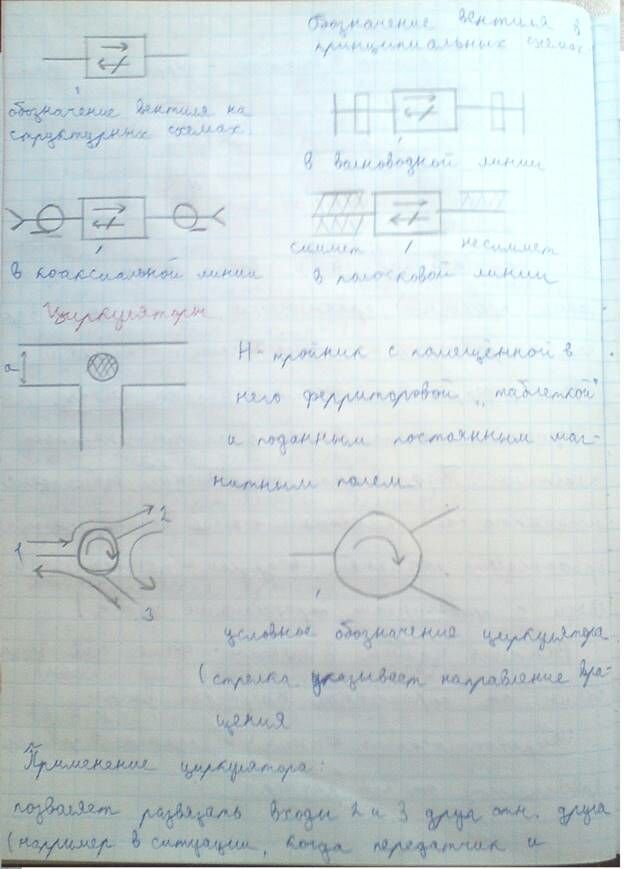 обозначение вентиля в
принципиальных схемах.
обозначение вентиля на
структурных схемах.
в волноводной линии
симмет. несиммет
в коаксиальной линии
в полосковой линии
Циркуляторы
Н-тройник с помещённой в
a
него ферриторовой „таблеткой"
и поданным постоянным маг-
нитным полем
1 2
3
условное обозначение циркулятора
(стрелка указывает направление вра-
щения
Применение циркулятора:
позволяет развязать входы 2 и 3 друг отн. друга
(например в ситуации, когда передатчик и